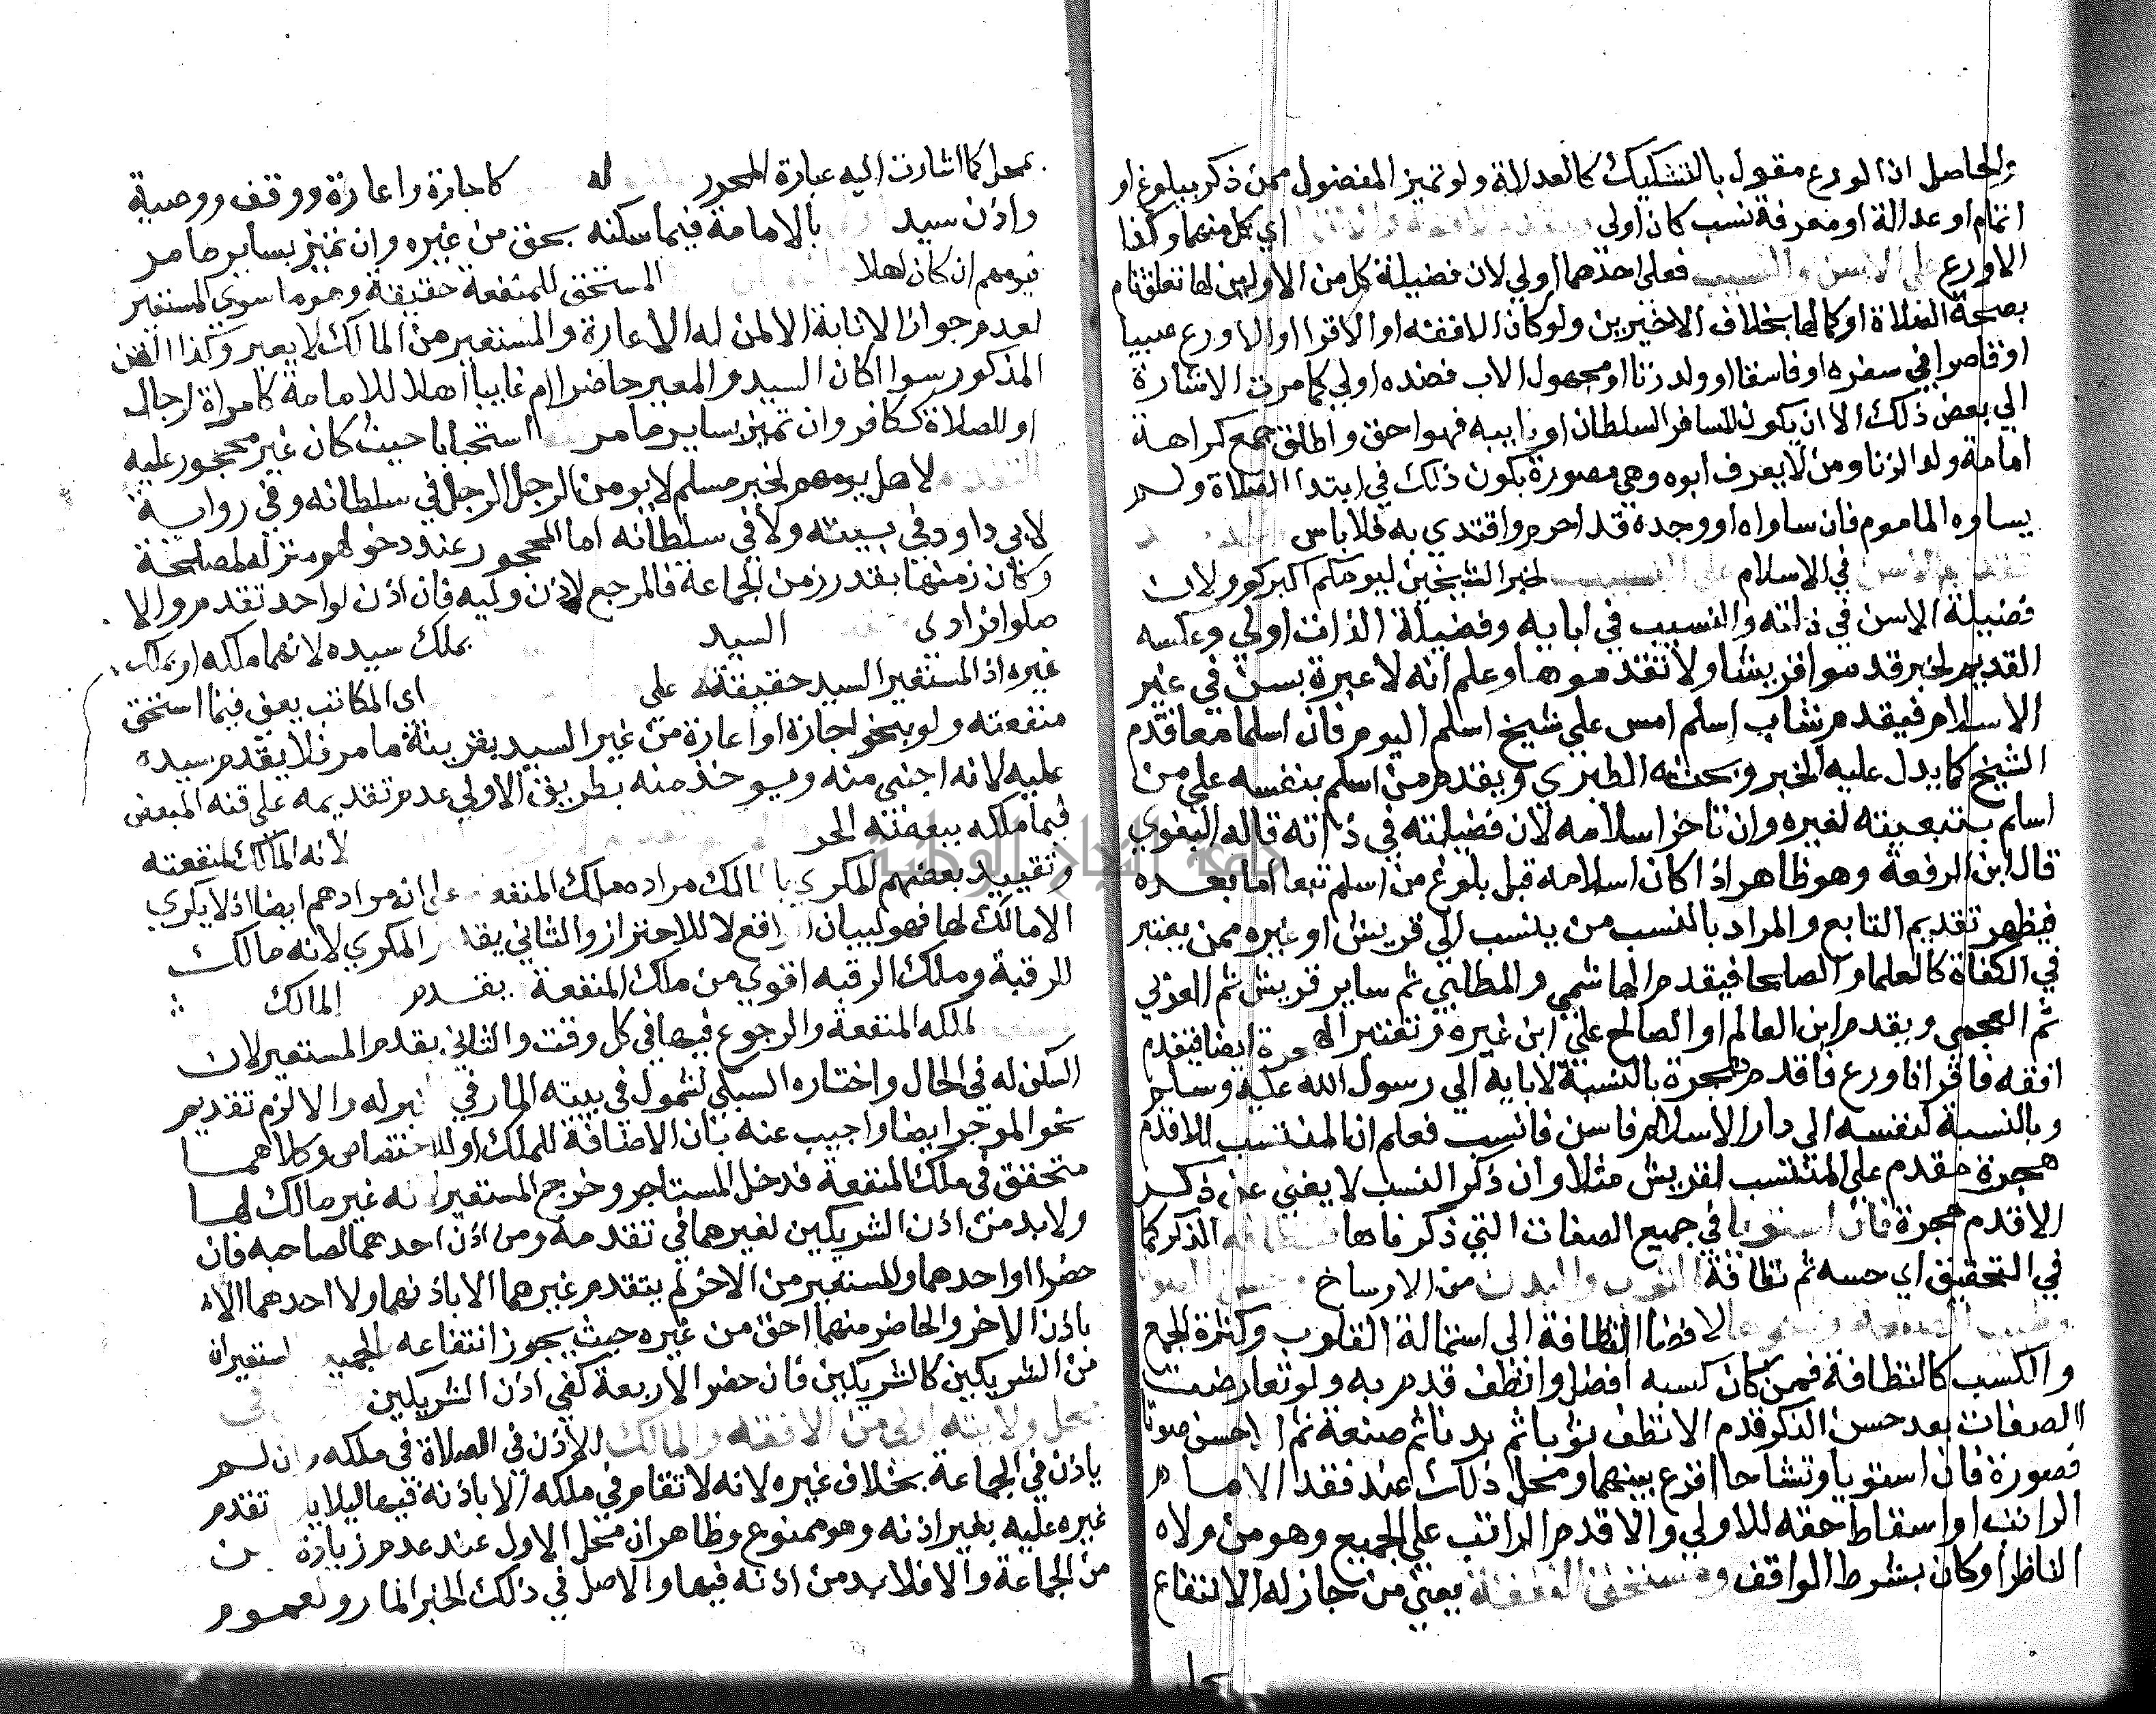 والحاصل ان الورع مقول بالتشكيك كالعدالة ولو تميز المفضول ممن ذكر ببلوغ او
اتمام او عدالة او معرفة نسب كان اولى اي كل منهما وكذا
الاورع على الاسن والنسيب فعلى احدهما اولي لان فضيلة كل من الاولين لها تعلق تام
بصحة الصلاة او كمالها بخلاف الاخيرين ولو كان الافقه او الاقرا او الاورع صبيا
او قاصرا في سفره او فاسقا او ولد زنا او مجهول الاب فضده اولي كما مرت الاشارة
الي بعض ذلك الا ان يكون المسافر السلطان او نايبه فهو احق واطلق جمع كراهة
امامة ولد الزنا ومن لا يعرف ابوه وهي مصورة بكون ذلك في ابتدا الصلاة ولم
يساوه الماموم فان ساواه او وجده قد احرم واقتدي به فلا باس
في الاسلام على النسيب لخبر الشيخين ليومكم اكبركم ولان
فضيلة الاسن في ذاته والنسيب في ابايه وفضيلة الذات اولي وعكسه
القديم لخبر قدموا قريشا ولا تقدموها وعلم انه لا عبرة بسن في غير
الاسلام فيقدم شاب اسلم امس علي شيخ اسلم اليوم فان اسلما معا قدم
الشيخ كما يدل عليه الخبر وبحثه الطبري ويقدم من اسلم بنفسه علي من
اسلم بتبعيته لغيره وان تاخر اسلامه لان فضيلته في ذاته قاله البغوي
قال ابن الرفعة وهو ظاهر اذا كان اسلامه قبل بلوغ من اسلم تبعا اما بعده
فيظهر تقديم التابع والمراد بالنسب من ينسب الي قريش او غيره ممن يعتبر
في الكفاة كالعلما والصلحا فيقدم الهاشمي والمطلبي ثم ساير قريش ثم العربي
ثم العجمي ويقدم ابن العالم او الصالح علي ابن غيره وتعتبر الهجرة ايضا فيقدم
افقه فاقرا فاورع فاقدم هجرة بالنسبة لابايه الي رسول الله عليه وسلم
وبالنسبة لنفسه الي دار الاسلام فاسن فانسب فعلم ان المنتسب للاقدم
هجرة مقدم علي المنتسب لقريش مثلا وان ذكر النسب لا يغني عن ذكر
الاقدم هجرة فان استويا في جميع الصفات التي ذكرناها الذكر كما
في التحقيق اي حسه ثم نظافة الثوب والبدن من الاوساخ
لافضا النظافة الى استمالة القلوب وكثرة الجمع
والكسب كالنظافة فمن كان كسبه افضل وانظف قدم به ولو تعارضت
الصفات بعد حسن الذكر قدم الانظف ثوبا ثم بدنا ثم صنعة ثم الاحسن صوتا
فصورة فان استويا وتشاحا اقرع بينهما ومحل ذلك عند فقد الامام
الراتب او اسقاط حقه للاولي والا قدم الراتب علي الجميع وهو من ولاه
الناظر او كان بشرط الواقف ومستحق المنفعة يعني من جاز له الانتفاع
بمحل
بمحل كما اشارت اليه عبارة المحرر له كاجارة واعارة ووقف ووصية
واذن سيد بالامامة فيما سكنه بحق من غيره وان تميز بساير ما مر
فيومهم ان كان اهلا المستحق للمنفعة حقيقة وهو ما سوي المستعير
لعدم جواز الانابة الا لمن له الاعارة والمستعير من المالك لا يعير وكذا القن
المذكور سوا اكان السيد والمعير حاضرا ام غايبا اهلا للامامة كامراة لرجال
او للصلاة ككافر وان تميز بساير ما مر استحبابا حيث كان غير محجور عليه
التقديم لاهل يومهم لخبر مسلم لا يومن الرجل الرجل في سلطانه وفي رواية
لابي داود في بيته ولا في سلطانه اما المحجور عند دخولهم منزله لمصلحة
وكان زمنها بقدر زمن الجماعة فالمرجع لاذن وليه فان اذن لواحد تقدم والا
صلوا فرادي السيد بملك سيده لانهما ملكه او بملك
غيره اذ المستعير السيد حقيقة على اي المكاتب يعني فيما استحق
منفعته ولو بنحو اجارة او اعارة من غير السيد بقرينة ما مر فلا يقدم سيده
عليه لانه اجنبي منه ويوخذ منه بطريق الاولي عدم تقديمه على قنه المبعض
فيما ملكه ببعضه الحر لانه المالك لمنفعته
وتقييد بعضهم المكري بالمالك مراده ملك المنفعة على انه مرادهم ايضا اذ لا يكري
الا مالك لها فهو لبيان الواقع لا للاحتراز والثاني يقدم المكري لانه مالك
للرقبة وملك الرقبة اقوي من ملك المنفعة يقدم المالك
لملكه المنفعة والرجوع فيها في كل وقت والثاني يقدم المستعير لان
السكن له في الحال واختاره السبكي لشمول في بيته المار في الخبر له والا لزم تقديم
نحو الموجر ايضا واجيب عنه بان الاضافة للملك او للاختصاص وكلاهما
متحقق في ملك المنفعة فدخل المستاجر وخرج المستعير لانه غير مالك لها
ولا بد من اذن الشريكين لغيرهما في تقدمه ومن اذن احدهما لصاحبه فان
حضرا او احدهما والمستعير من الاخر لم يتقدم غيرهما الا باذنهما ولا احدهما الا
باذن الاخر والحاضر منهما احق من غيره حيث يجوز انتفاعه بالجميع والمستعيران
من الشريكين كالشريكين فان حضر الاربعة كفي اذن الشريكين
محل ولايته اولى من الافقه والمالك للاذن في الصلاة في ملكه وان لم
ياذن في الجماعة بخلاف غيره لانه لا تقام في ملكه الا باذنه فيها ليلا تقدم
غيره عليه بغير اذنه وهو ممنوع وظاهر ان محل الاول عند عدم زيادة
من الجماعة والا فلا بد من اذنه فيها والاصل في ذلك الخبر المار ولعموم
جامعة النجاح الوطنية